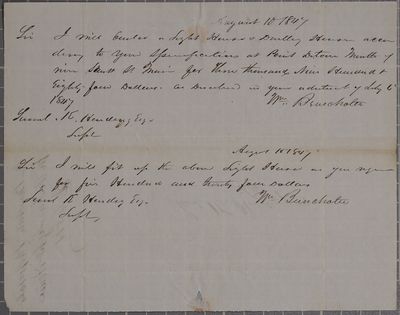 August 10 1847
Sir I will Build a Light House & Dwelling House accor
ding to your Specifications at Point Detour Mouth of
river Sault St Marie for three thousand Nine Hundred &
Eighty four Dollars. as Described in your advertisement of July 6
1847
Wm
Saml. K. Esq.
Supt
August 10 1847
Sir I will fit up the above Light House as you require
for five Hundred and Ninety four Dollars
Wm
Saml K Esq.
Supt